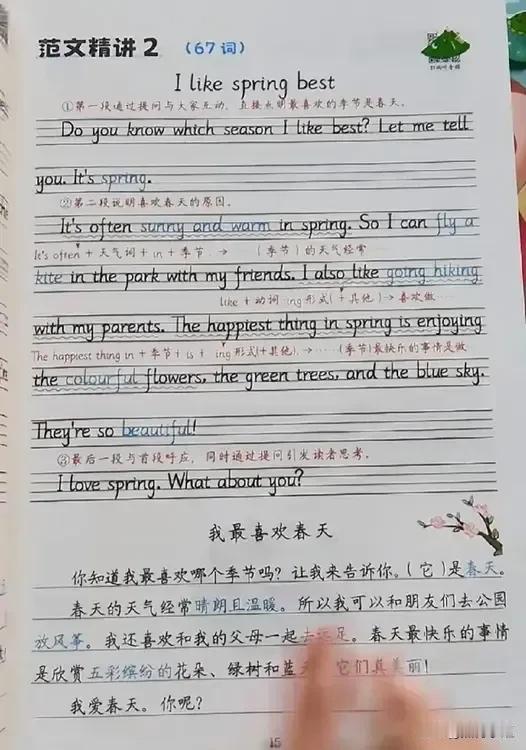 范文精讲2 (67词)
扫码听音频
I like spring best
①第一段通过提问与大家互动，直接点明最喜欢的季节是春天。
Do you know which season I like best? Let me tell
you. It's spring.
②第二段说明喜欢春天的原因。
It's often sunny and warm in spring. So I can fly a
It's often + 天气词 + in + 季节. → (季节)的天气经常……
kite in the park with my friends. I also like going hiking
like + 动词-ing形式(+其他) → 喜欢做……
with my parents. The happiest thing in spring is enjoying
The happiest thing in + 季节 + is + -ing形式(+其他). → ……(季节)最快乐的事情是做
the colourful flowers, the green trees, and the blue sky.
They're so beautiful!
③最后一段与首段呼应，同时通过提问引发读者思考。
I love spring. What about you?
我最喜欢春天
你知道我最喜欢哪个季节吗？让我来告诉你。(它)是春天。
春天的天气经常晴朗且温暖。所以我可以和朋友们去公园
放风筝。我还喜欢和我的父母一起去远足。春天最快乐的事情
是欣赏五彩缤纷的花朵、绿树和蓝天。它们真美丽！
我爱春天。你呢？
15